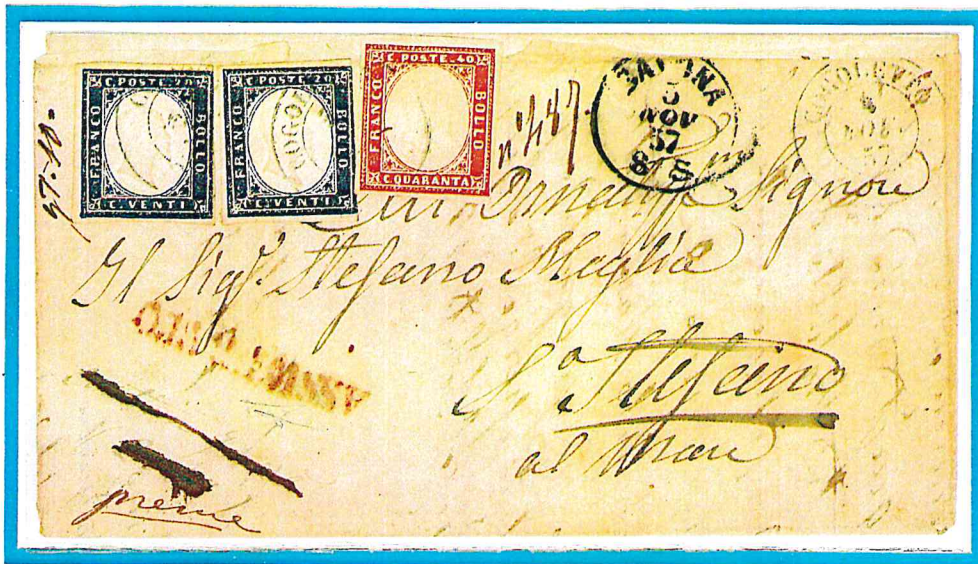 C. POSTE. 20
FRANCO
BOLLO
C. VENTI
C. POSTE. 20
FRANCO
BOLLO
C. VENTI
C. POSTE. 40
FRANCO
BOLLO
C. QUARANTA
SAVONA
5
NOV
57
8 S
Signore
Il Sigr. Stefano Maglia
Sto. Stefano
al Mare
ASSICURATO
preme